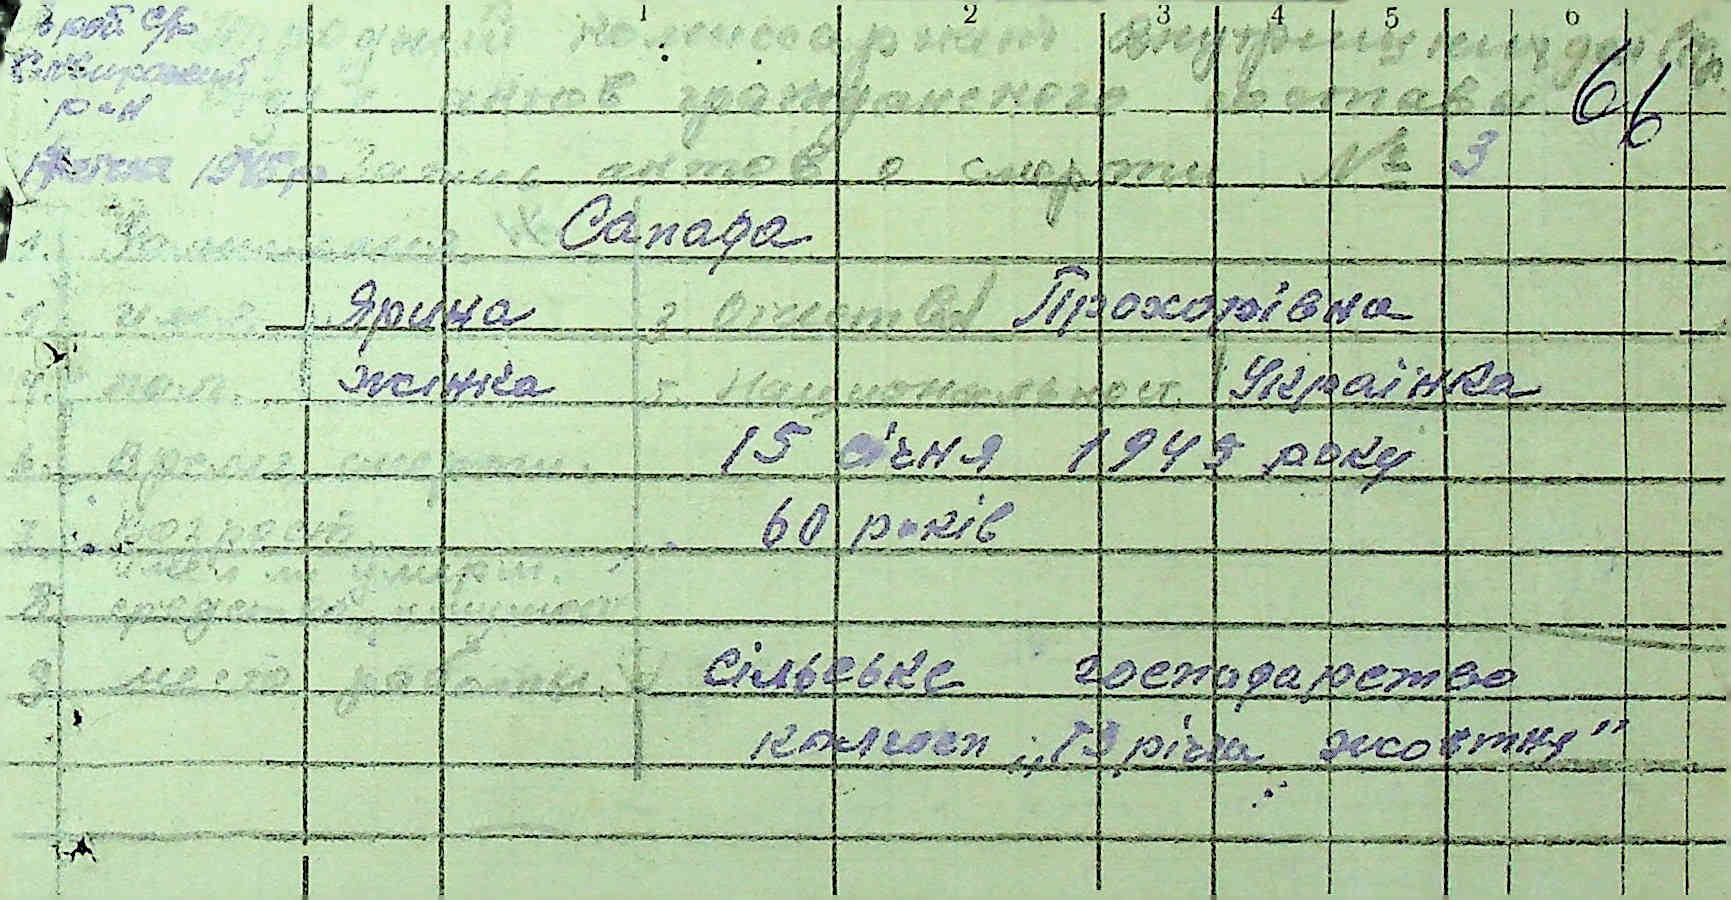 1 2 3 4 5 6
с/р
р-н
Народний комиссариат внутренних дел
актов гражданского состава
66
Запись актов о смерти № 3
1. Фамилия Сапада
2. имя Ярина 3. Отчество Прохорівна
4. пол. жінка 5. Национальност. Українка
6. Время смерти. 15 січня 1943 року
7. Возраст 60 років
имел ли умерш.
8. средства
9. место работы. сільське господарство
колгосп „13 річчя жовтня"